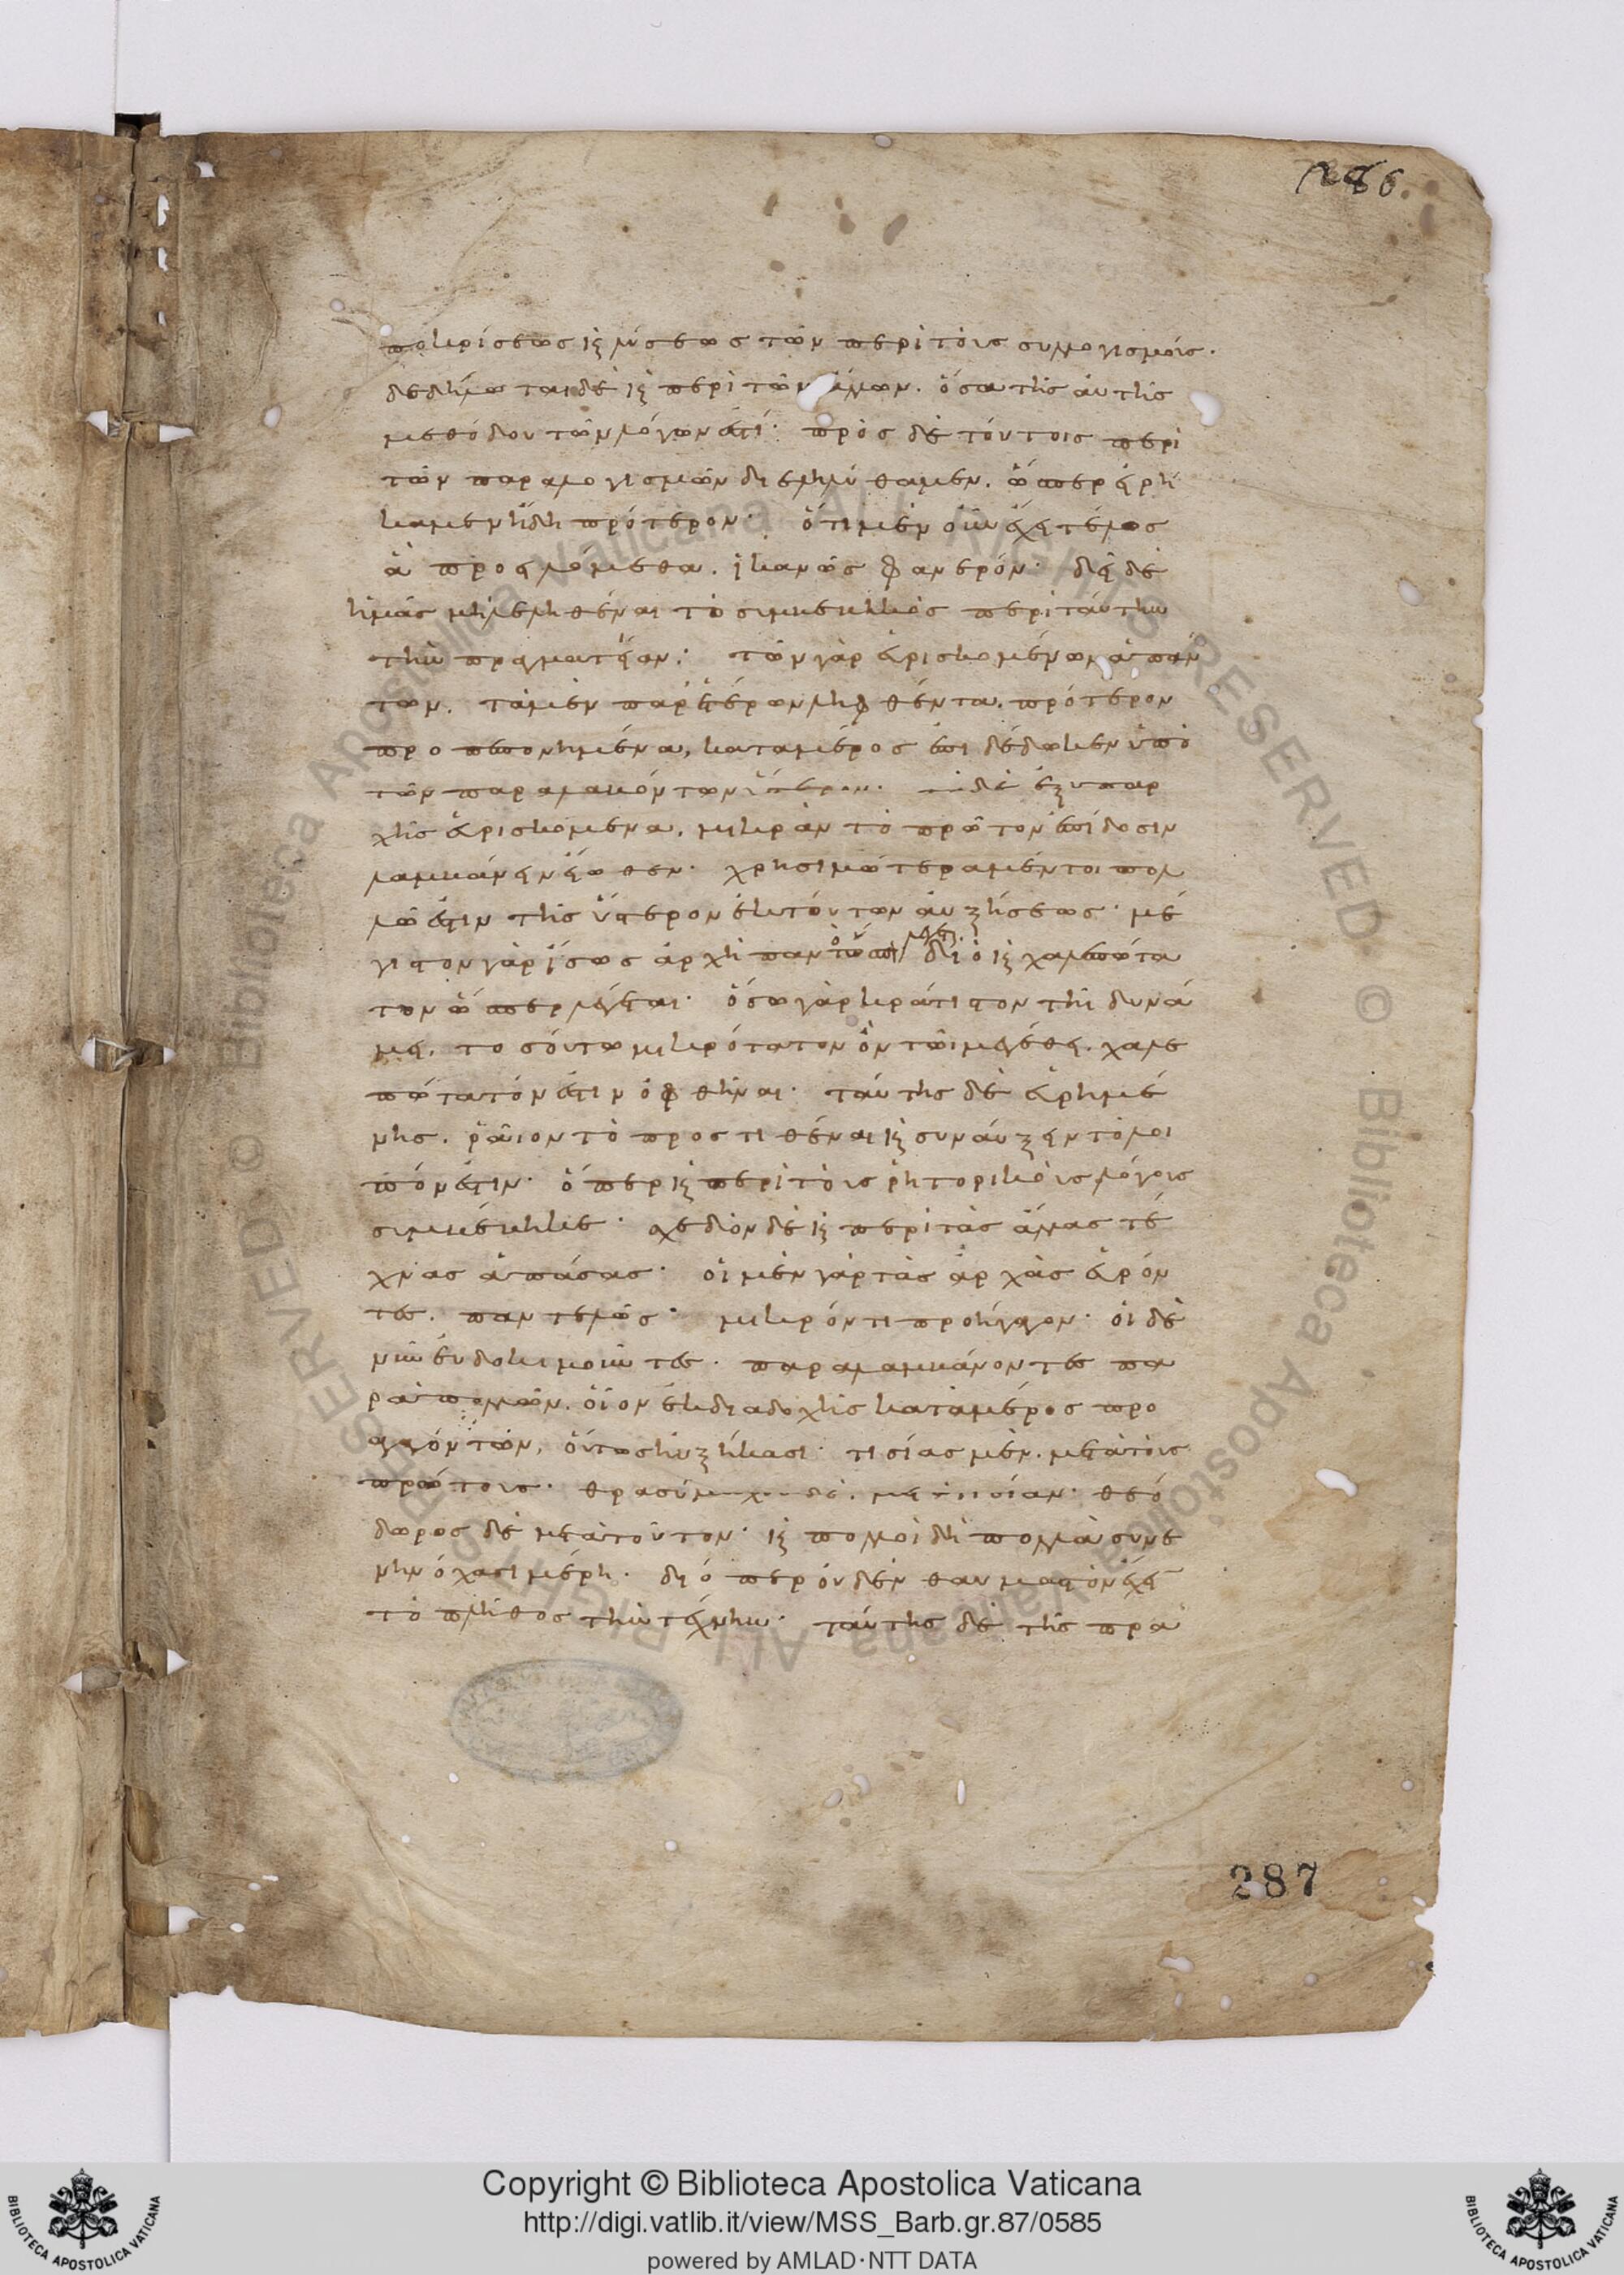 ποκρίσεως καὶ λύσεως τῶν περὶ τοὺς συλλογισμούς·
δεδήλωται δὲ καὶ περὶ τῶν ἄλλων. ὅσα τῆς αὐτῆς
μεθόδου τῶν λόγων ἐστί· πρὸς δὲ τούτοις περὶ
τῶν παραλογισμῶν διεληλύθαμεν. ὥσπερ εἰρή
καμεν ἤδη πρότερον· ὅτι μὲν οὖν ἔχει τέλος
ἃ προειλόμεθα. ἱκανῶς φανερόν· δεῖ δὲ
ἡμᾶς μὴ λεληθέναι τὸ συμβεβηκὸς περὶ ταύτην
τὴν πραγματείαν· τῶν γὰρ εὑρισκομένων ἁπάν
των. τὰ μὲν παρ' ἑτέρων ληφθέντα. πρότερον
προπεπονημένα, κατὰ μέρος ἐπιδέδωκεν ὑπὸ
τῶν παραλαβόντων ὕστερον· τὰ δὲ ἐξ ὑπαρ
χῆς εὑρισκόμενα. μικρὰν τὸ πρῶτον ἐπίδοσιν
λαμβάνειν εἴωθεν· χρησιμωτέρα μέντοι πολ
λῷ ἐστιν τῆς ὕστερον ἐκ τούτων αὐξήσεως· μέ
γιστον γὰρ ἴσως ἀρχὴ παντὸς διὸ καὶ χαλεπώτα
τον ὥσπερ λέγεται· ὅσω γὰρ κράτιστον τῇ δυνά
μει. τοσούτω μικρότατον ὂν τῶι μεγέθει. χαλε
πώτατόν ἐστιν ὀφθῆναι· ταύτης δὲ εὑρημέ
νης. ῥᾶιον τὸ προστιθέναι καὶ συναύξειν τὸ λοι
πόν ἐστιν· ὅπερ καὶ περὶ τοὺς ῥητορικοὺς λόγους
συμβέβηκε· σχεδὸν δὲ καὶ περὶ τὰς ἄλλας τέ
χνας ἁπάσας· οἱ μὲν γὰρ τὰς ἀρχὰς εὑρόν
τες. παντελῶς· μικρόν τι προήγαγον· οἱ δὲ
νῦν εὐδοκιμοῦντες. παραλαμβάνοντες πα
ρὰ πολλῶν. οἷον ἐκ διαδοχῆς κατὰ μέρος προ
αγόντων, οὕτως ηὐξήκασι· τισίας μὲν. μετὰ τοὺς
πρώτους· θρασύμαχος δὲ. μετὰ τισίαν· θεό
δωρος δὲ μετὰ τοῦτον· καὶ πολλοὶ δὴ πολλὰ συνε
νηνόχασι μέρη. διόπερ οὐδὲν θαυμαστὸν ἔχειν
τὸ πλῆθος τὴν τέχνην· ταύτης δὲ τῆς πρα
287
Copyright © Biblioteca Apostolica Vaticana
http://digi.vatlib.it/view/MSS_Barb.gr.87/0585
powered by AMLAD·NTT DATA